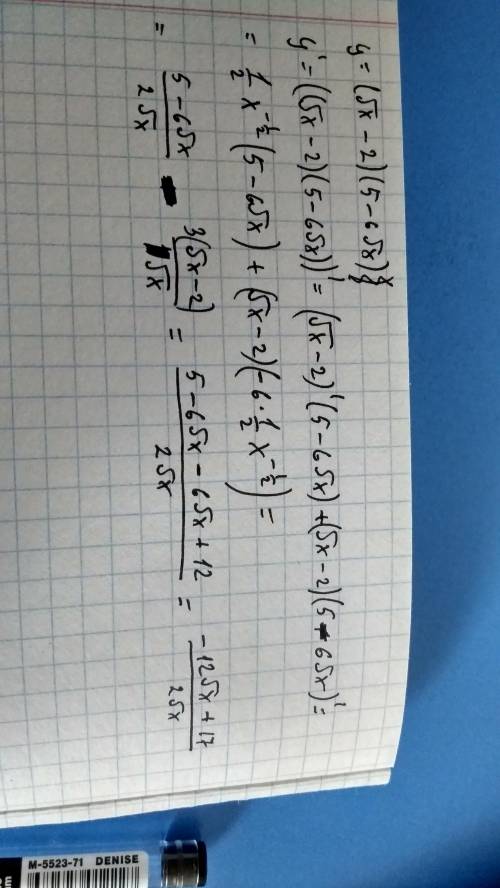 y = (√x - 2)(5 - 6√x)
y' = ((√x - 2)(5 - 6√x))' = (√x - 2)'(5 - 6√x) + (√x - 2)(5 - 6√x)' =
= 1/2 x^(-1/2) (5 - 6√x) + (√x - 2)(-6 · 1/2 x^(-1/2)) =
= (5 - 6√x)/(2√x) - 3(√x - 2)/(√x) = (5 - 6√x - 6√x + 12)/(2√x) = (-12√x + 17)/(2√x)
M-5523-71 DENISE